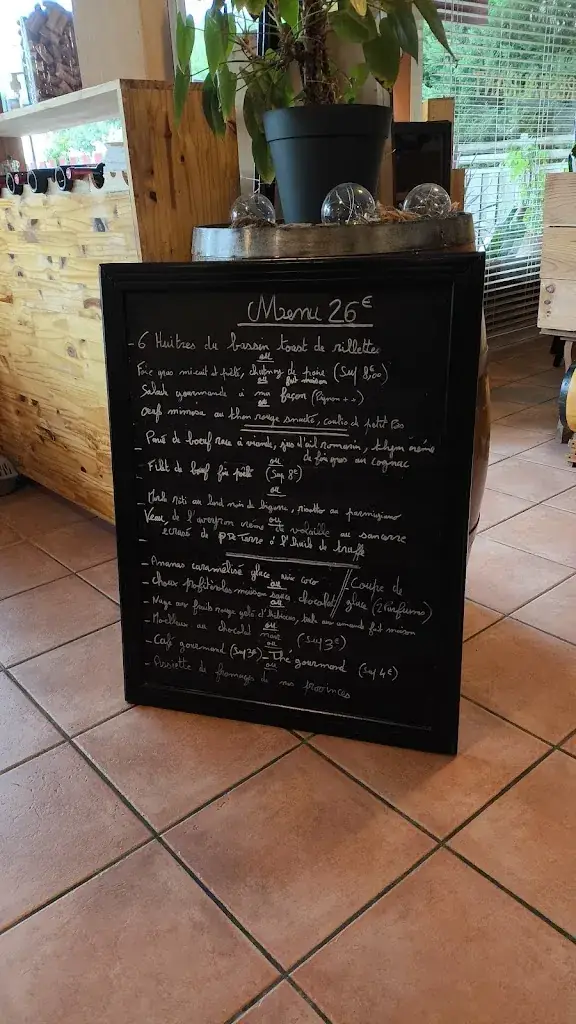 Menu 26€
- 6 Huitres du bassin toast de rillettes
ou
Foie gras mi cuit et pité, chutney de poire (Sup 8€00)
ou fait maison
Salade gourmande à ma façon (Pignon + 2)
ou
Oeuf mimosa au thon rouge smuté, coulis de petit Pas
- Pavé de boeuf race à viande, jus d'ail romarin, thym crème
de foie gras au cognac
ou
- Filet de boeuf foie (Sup 8€)
ou
- roti au lard noir de bigorre, risotto au parmigiano
ou
- Veau de l'aveyron crème de volaille au sancerre
ecrasé de Pde Terre à l'huile de truffe
- Ananas caramélisé glace noix coco
ou
- Choux profiteroles maison sauce chocolat
ou
- Nage aux fruits rouge gelé d'hibiscus, tuile aux amande fait maison
ou
- Moelleux au chocolat noir (Sup 3€)
ou
- Café gourmand (Sup 3€) - Thé gourmand (Sup 4€)
ou
- Assiette de fromages de nos provinces
Coupe de
glace (2 Parfums)